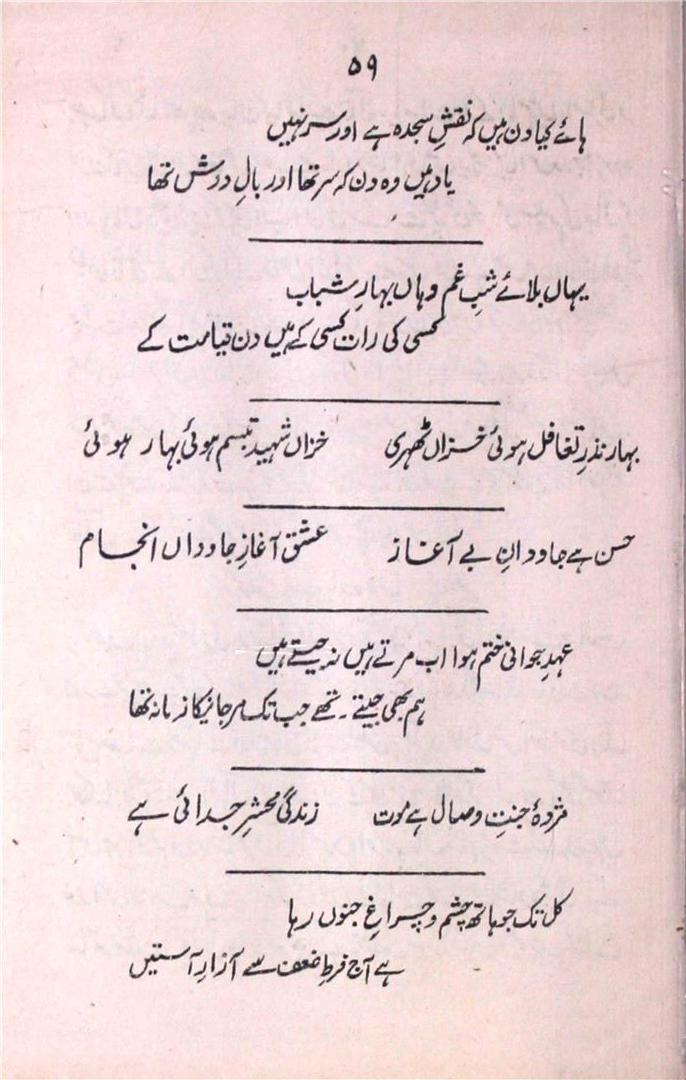 ۵۹
ہائے کیا دن ہیں کہ نقشِ سجدہ ہے اور سر نہیں
یاد ہیں وہ دن کہ سر تھا اور بالِ دوش تھا
یہاں بلائے شبِ غم وہاں بہارِ شباب
کسی کی رات کسی کے ہیں دن قیامت کے
بہار نذرِ تغافل ہوئی خزاں ٹھہری خزاں شہیدِ تبسم ہوئی بہار ہوئی
حسن ہے جاودانِ بے آغاز عشق آغازِ جاوداں انجام
عہدِ جوانی ختم ہوا اب مرتے ہیں نہ جیتے ہیں
ہم بھی جیتے۔تھے جب تک مر جانیکا زمانہ تھا
مژدۂ جنتِ وصال ہے موت زندگی محشرِ جدائی ہے
کل تک جو ہاتھ چشم و چراغِ جنوں رہا
ہے آج فرطِ ضعف سے آزارِ آستیں